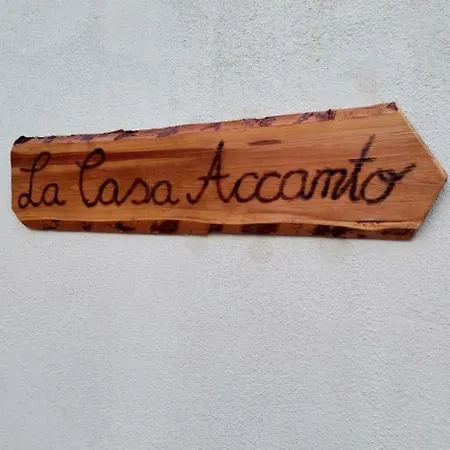 La Casa Accanto